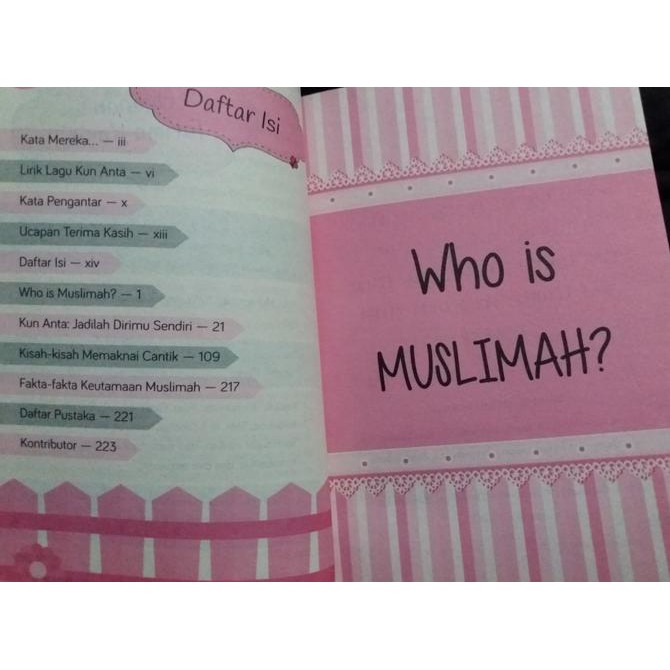 Daftar Isi
Kata Mereka... — iii
Lirik Lagu Kun Anta — vi
Kata Pengantar — x
Ucapan Terima Kasih — xiii
Daftar Isi — xiv
Who is Muslimah? — 1
Kun Anta: Jadilah Dirimu Sendiri — 21
Kisah-kisah Memaknai Cantik — 109
Fakta-fakta Keutamaan Muslimah — 217
Daftar Pustaka — 221
Kontributor — 223
Who is
MUSLIMAH?